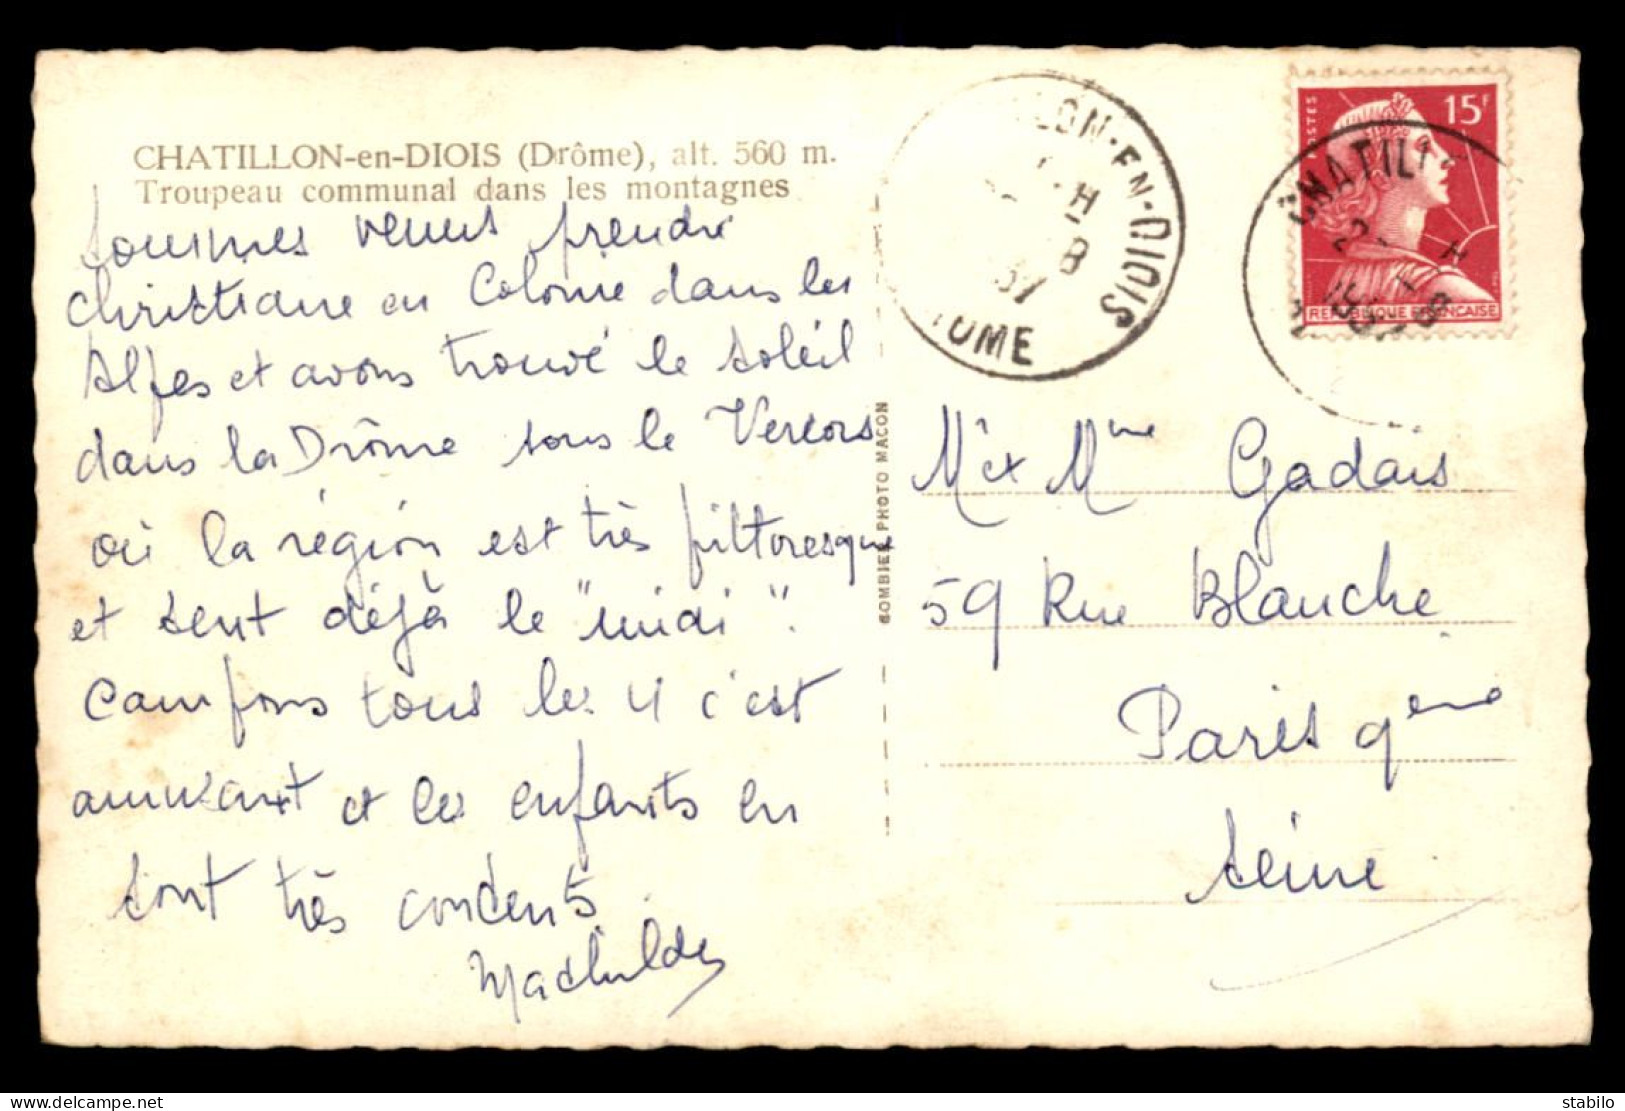 CHATILLON-en-DIOIS (Drôme), alt. 560 m.
Troupeau communal dans les montagnes
Sommes venus prendre
Christiane en Colonie dans les
Alpes et avons trouvé le soleil
dans la Drôme sous le Vercors
où la région est très pittoresque
et sent déjà le "midi".
Campons tous les 4 c'est
amusant et les enfants en
sont très contents.
Mathilde
COMBIER PHOTO MACON
LON-EN-DIOIS
H
8
57
OME
CHATILL
POSTES
15F
REPUBLIQUE FRANCAISE
Mr et Mme Gadais
59 Rue Blanche
Paris 9eme
Seine
delcampe.net
stabilo